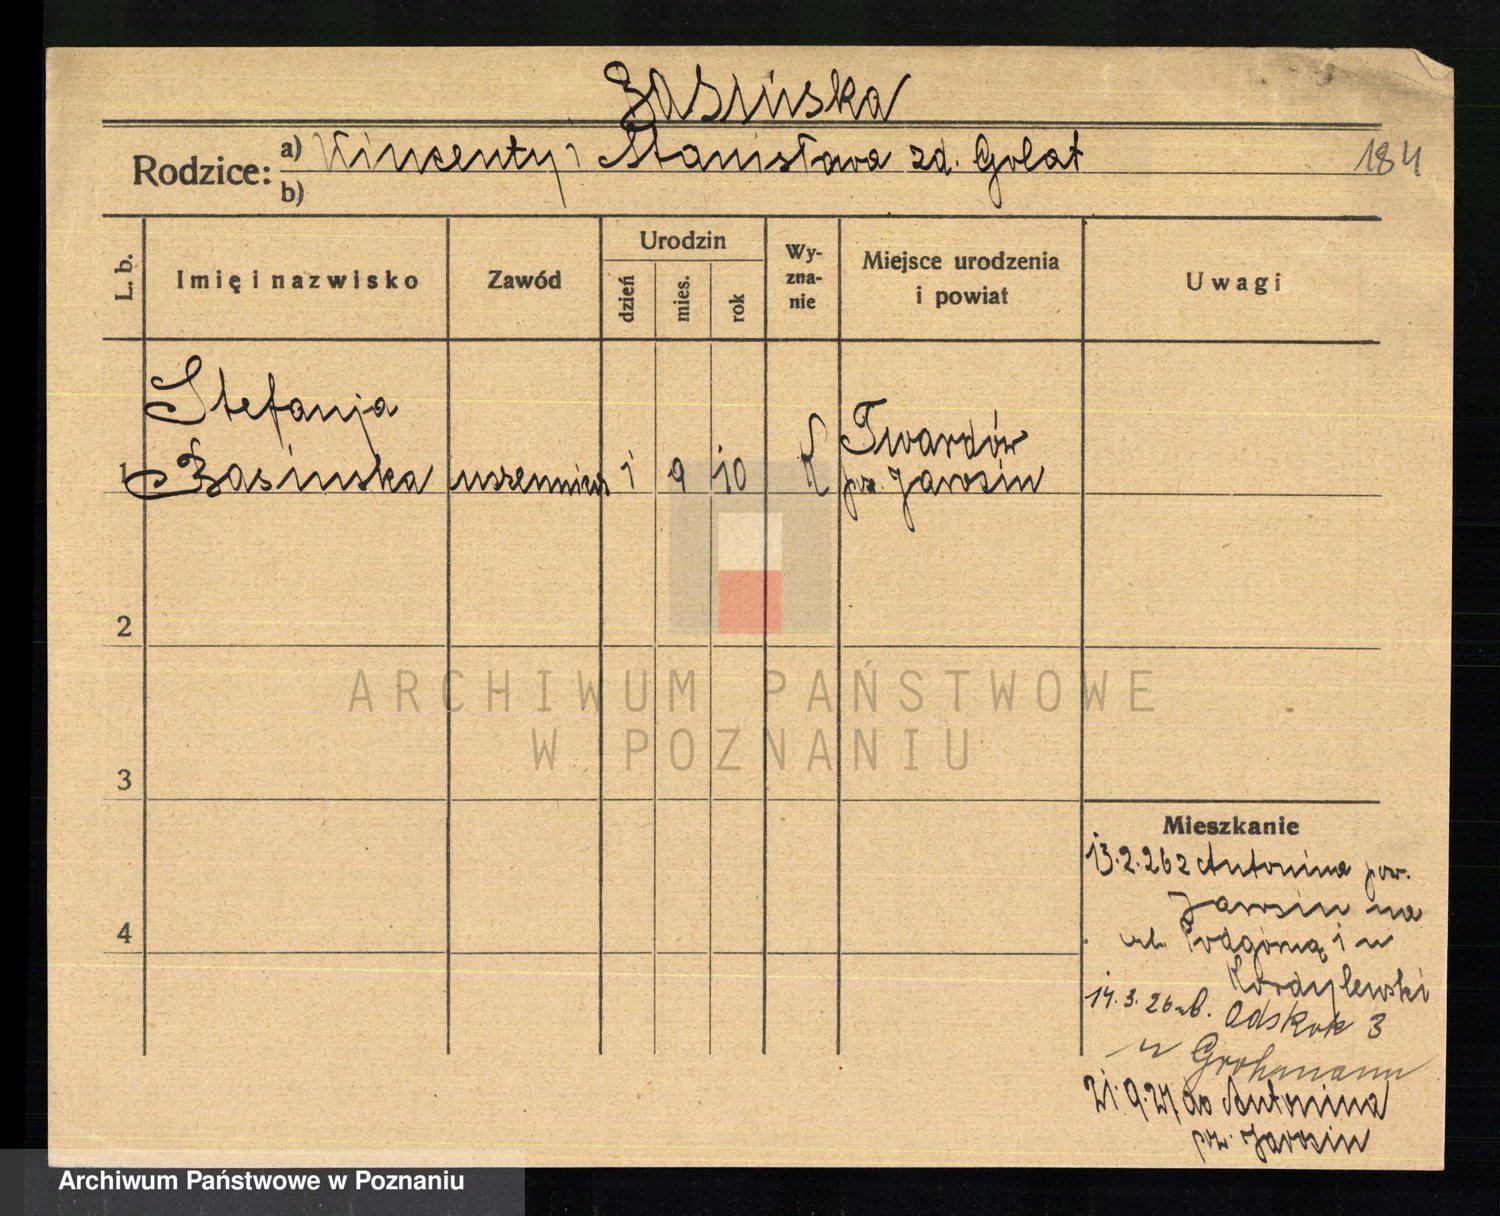 Zasińska
Rodzice: a) Wincenty i Stanisława zd. Golat
b)
184
L. b.
Imię i nazwisko
Zawód
Urodzin
dzień
mies.
rok
Wy-
zna-
nie
Miejsce urodzenia
i powiat
Uwagi
Stefanja
1 Zasinska uczennica 1 9 10 K Twardów
pow. Jarosin
2
3
4
Mieszkanie
13.2.26 z Antonina pow.
Jarosin na
ul. Podgórną 1 u
Kordylewski
14.3.26 ul. Odskok 3
u Grohmann
21.9.27 do Antonina
pow. Jarosin
ARCHIWUM PAŃSTWOWE
W POZNANIU
Archiwum Państwowe w Poznaniu